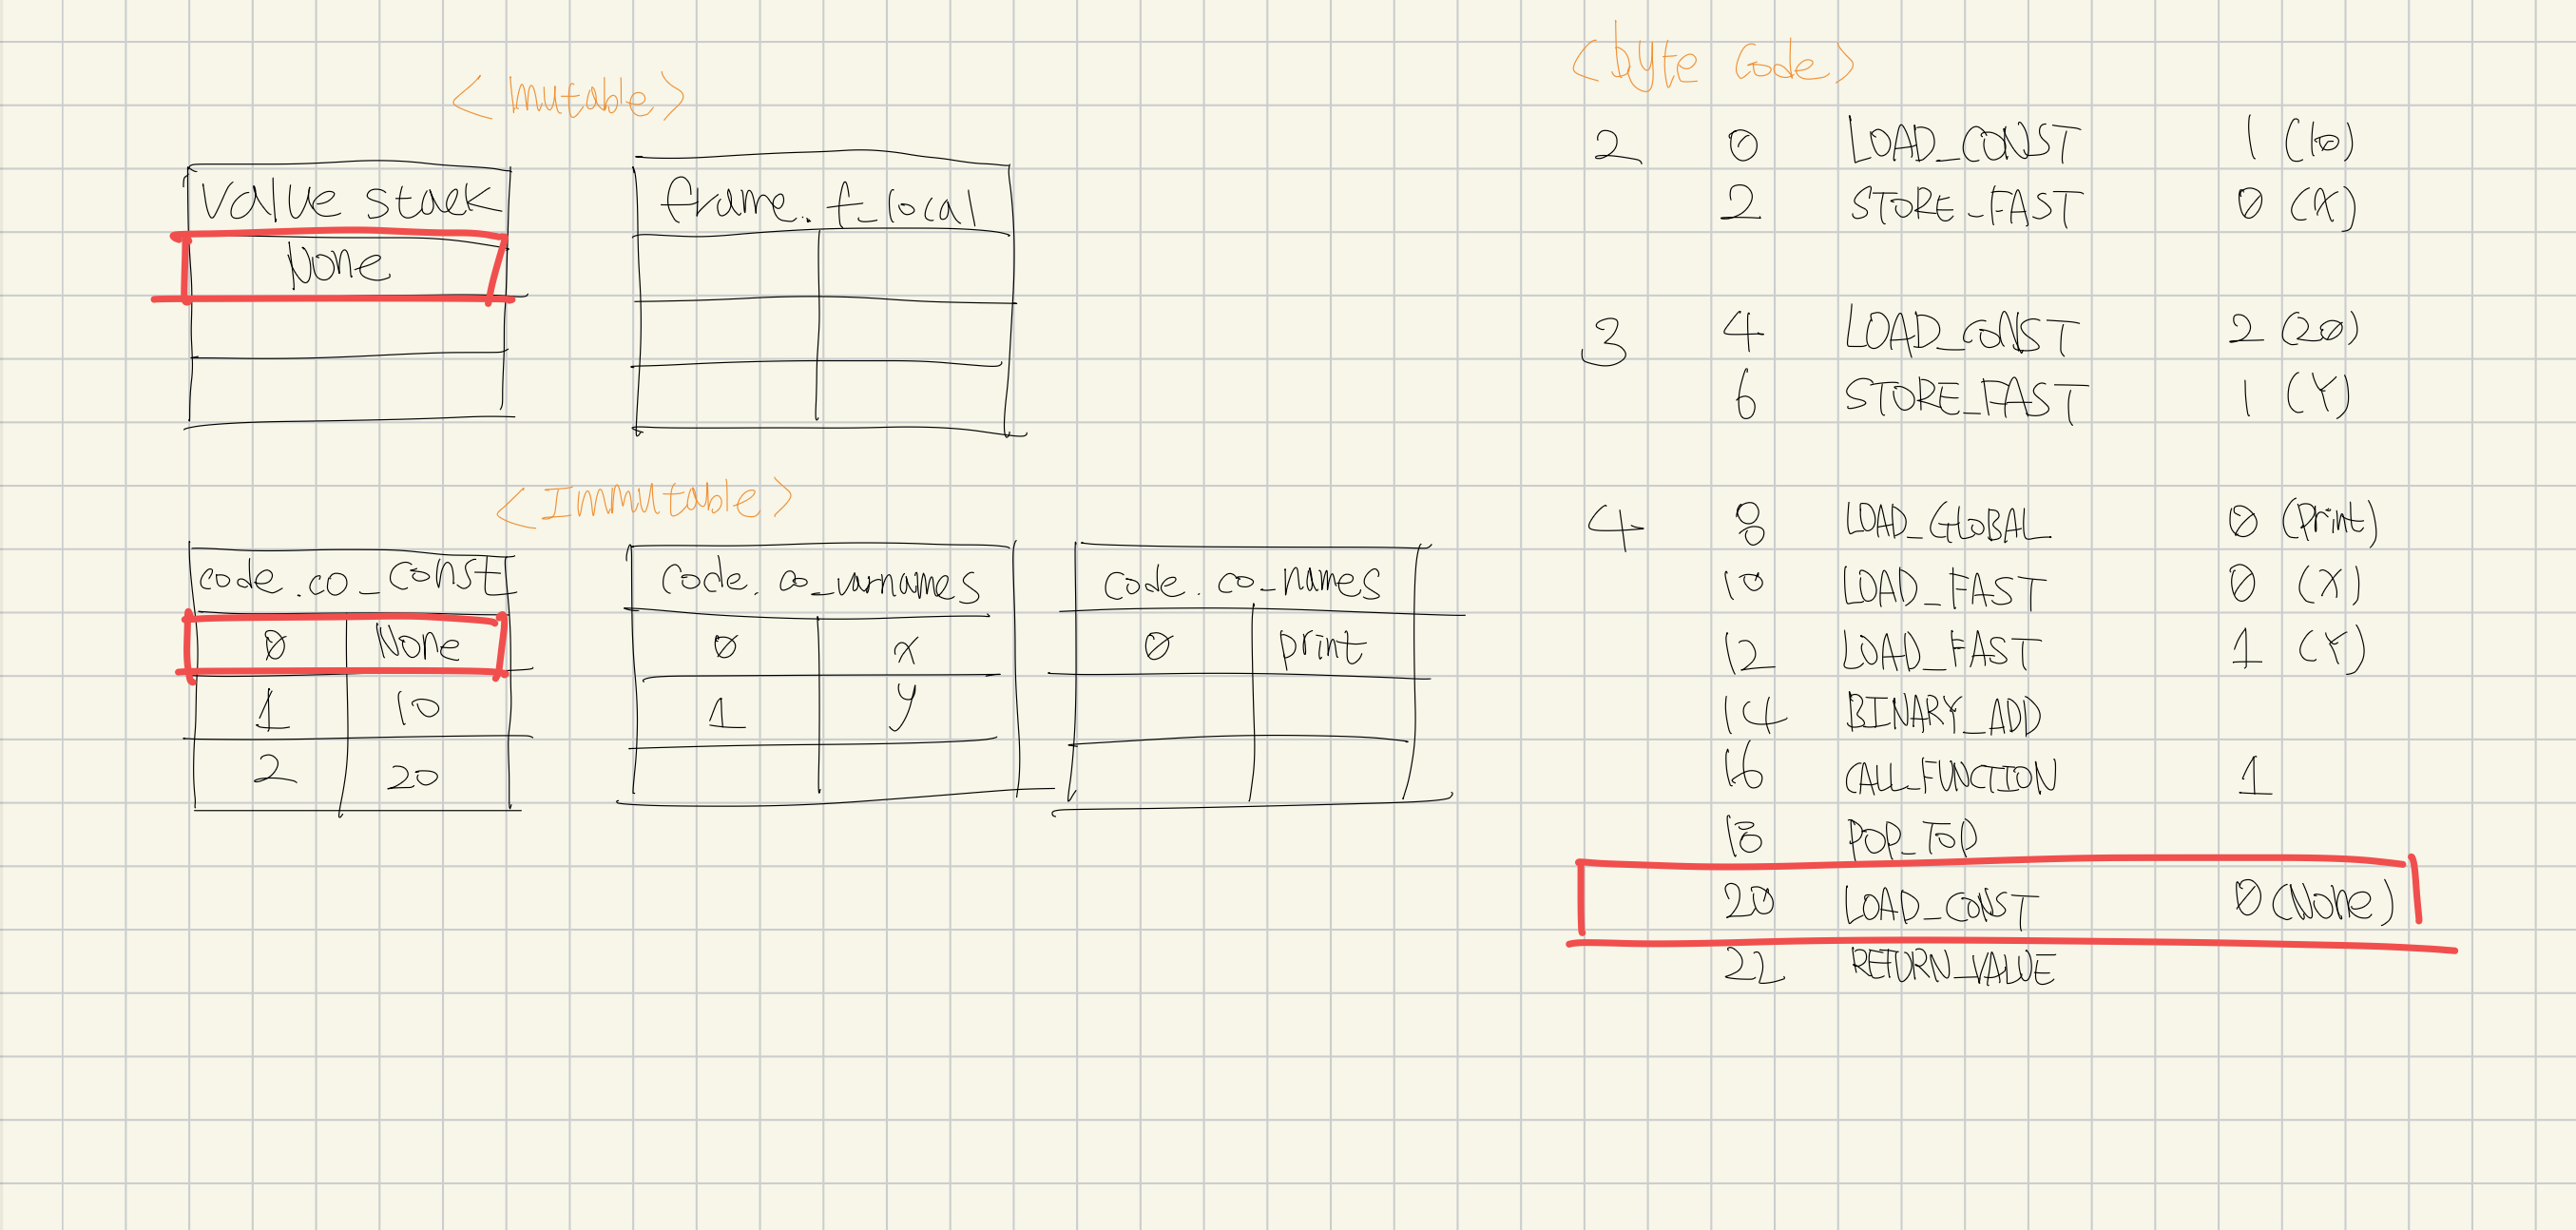 <Mutable>
value stack
None
frame.f_local
<Immutable>
code.co_const
0 None
1 10
2 20
code.co_varnames
0 x
1 y
code.co_names
0 print
<byte Code>
2 0 LOAD_CONST 1 (10)
2 STORE_FAST 0 (X)
3 4 LOAD_CONST 2 (20)
6 STORE_FAST 1 (Y)
4 8 LOAD_GLOBAL 0 (Print)
10 LOAD_FAST 0 (X)
12 LOAD_FAST 1 (Y)
14 BINARY_ADD
16 CALL_FUNCTION 1
18 POP_TOP
20 LOAD_CONST 0 (None)
22 RETURN_VALUE